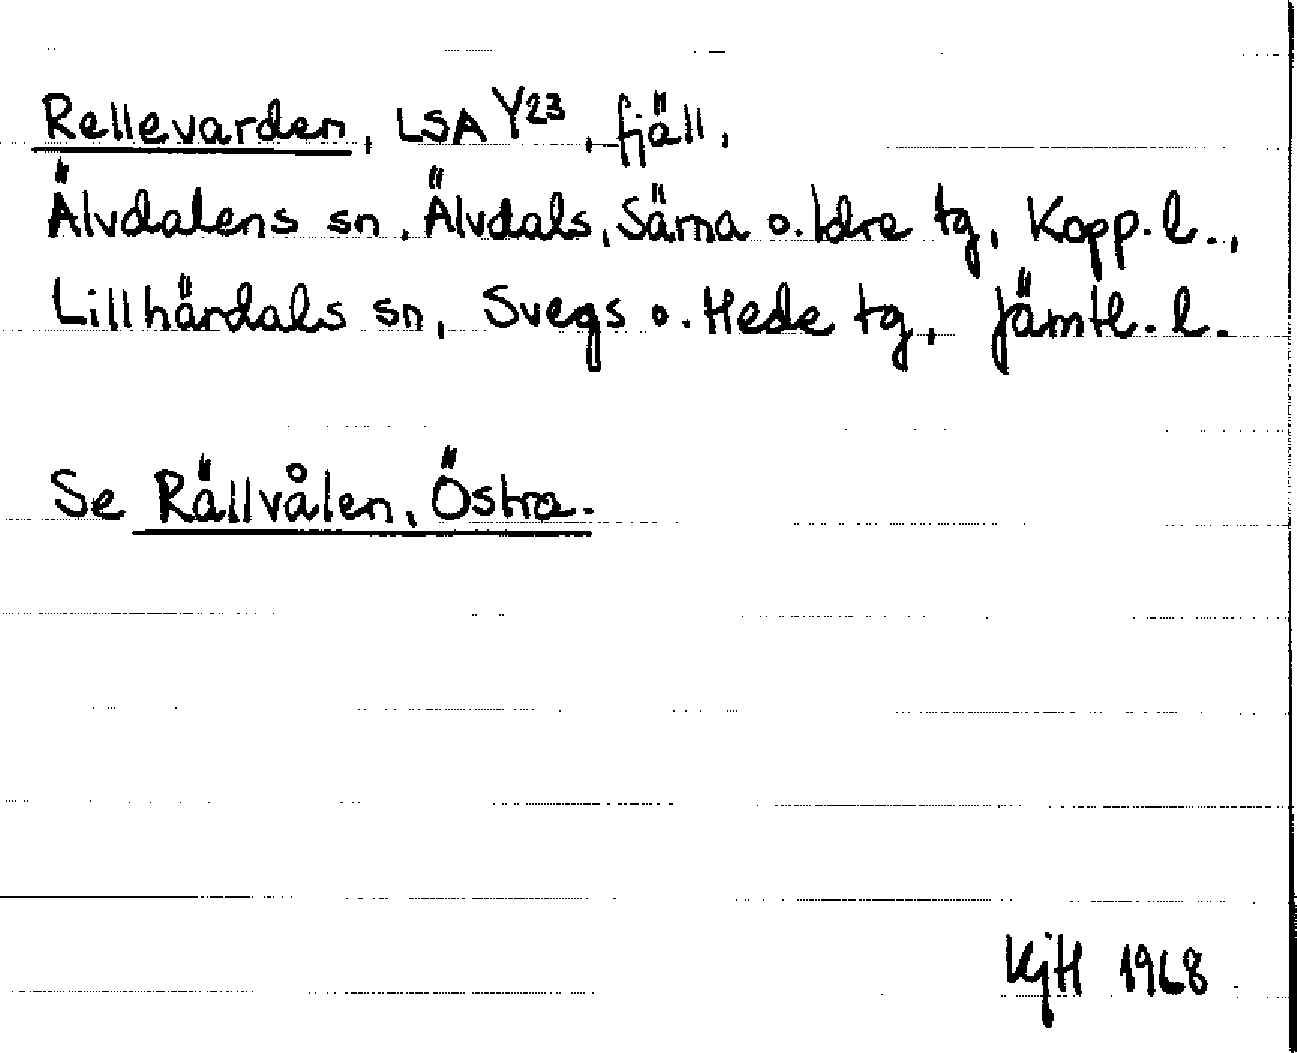 Rellevarden, LSA Y23, fjäll,
Älvdalens sn, Älvdals, Särna o. Idre tg, Kopp. l.,
Lillhärdals sn, Svegs o. Hede tg, Jämtl. l.
Se Rällvålen, Östra.
KjH 1968